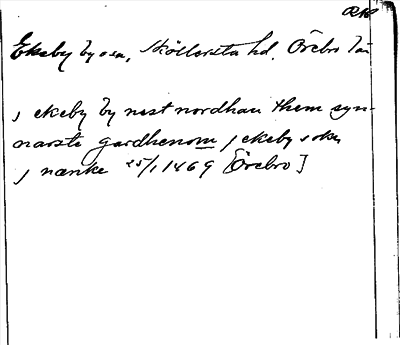 RAp
Ekeby by o sn, Sköllersta hd, Örebro län
j ekeby by nest nordhan them syn-
narste gardhenom j ekeby sokn
j nærike 25/1 1469 [Örebro]